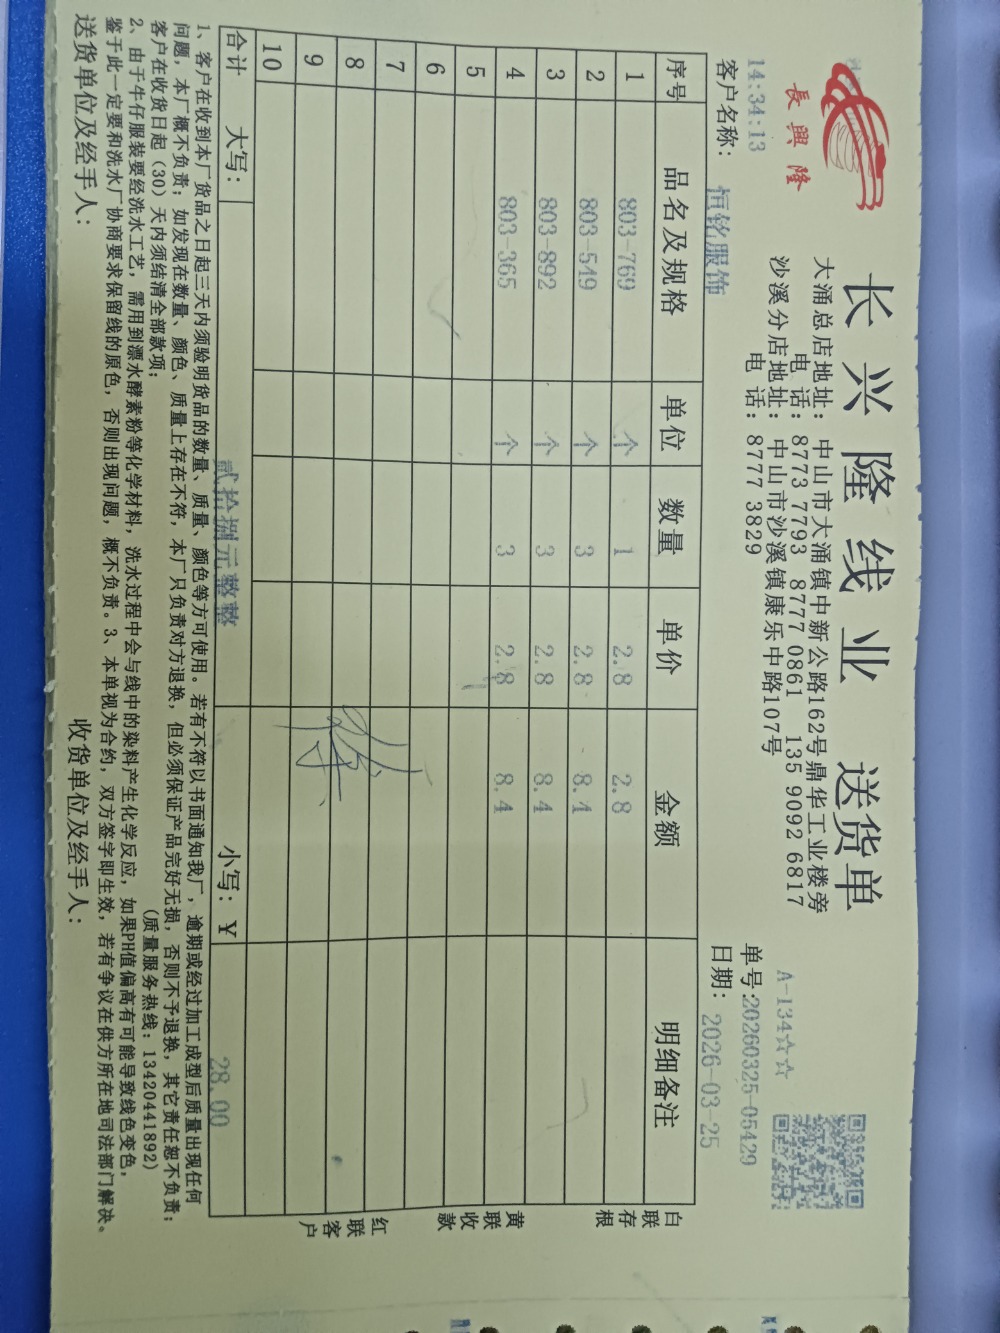 長興隆
长兴隆线业 送货单
A-134☆☆
大涌总店地址：中山市大涌镇中新公路162号鼎华工业楼旁
电 话：8773 7793 8777 0861 135 9092 6817
沙溪分店地址：中山市沙溪镇康乐中路107号
电 话：8777 3829
14:34:13
单号:20260325-05429
客户名称： 恒铭服饰
日期： 2026-03-25
序号 品名及规格 单位 数量 单价 金额 明细备注
1 803-769 个 1 2.8 2.8
2 803-549 个 3 2.8 8.4
3 803-892 个 3 2.8 8.4
4 803-365 个 3 2.8 8.4
5
6
7
8
9
10
合计 大写： 贰拾捌元整整 小写：￥ 28.00
白联存根
黄联收款
红联客户
1、客户在收到本厂货品之日起三天内须验明货品的数量、质量、颜色等方可使用。若有不符以书面通知我厂，逾期或经过加工成型后质量出现任何
问题，本厂概不负责；如发现在数量、颜色、质量上存在不符，本厂只负责对方退换，但必须保证产品完好无损，否则不予退换，其它责任恕不负责；
客户在收货日起（30）天内须结清全部款项； (质量服务热线：13420441892)
2、由于牛仔服装要经洗水工艺，需用到漂水酵素粉等化学材料，洗水过程中会与线中的染料产生化学反应，如果PH值偏高有可能导致线色变色，
鉴于此一定要和洗水厂协商要求保留线的原色，否则出现问题，概不负责。3、本单视为合约，双方签字即生效，若有争议在供方所在地司法部门解决。
送货单位及经手人： 收货单位及经手人：